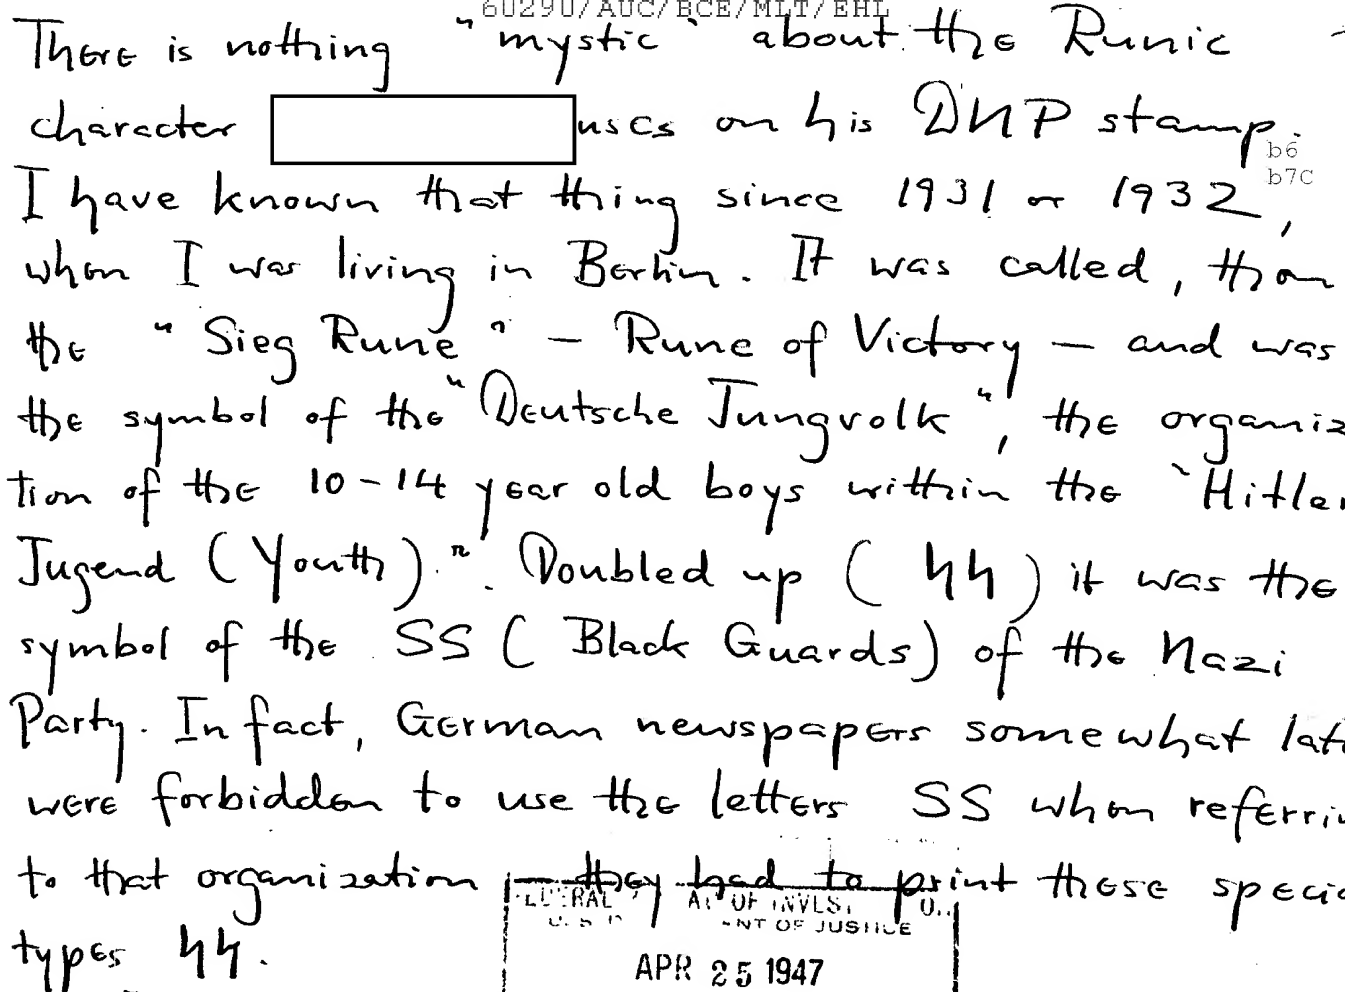 60290/AUC/BCE/MLT/EHL
There is nothing "mystic" about the Runic
character uses on his DNP stamp.
b6
b7C
I have known that thing since 1931 or 1932,
when I was living in Berlin. It was called, then
the "Sieg Rune" — Rune of Victory — and was
the symbol of the "Deutsche Jungvolk", the organiz
tion of the 10-14 year old boys within the "Hitler
Jugend (Youth)." Doubled up ( ᛋᛋ ) it was the
symbol of the SS ( Black Guards) of the Nazi
Party. In fact, German newspapers somewhat late
were forbidden to use the letters SS when referrin
to that organization — they had to print these specia
types ᛋᛋ.
OF JUSTICE
APR 25 1947